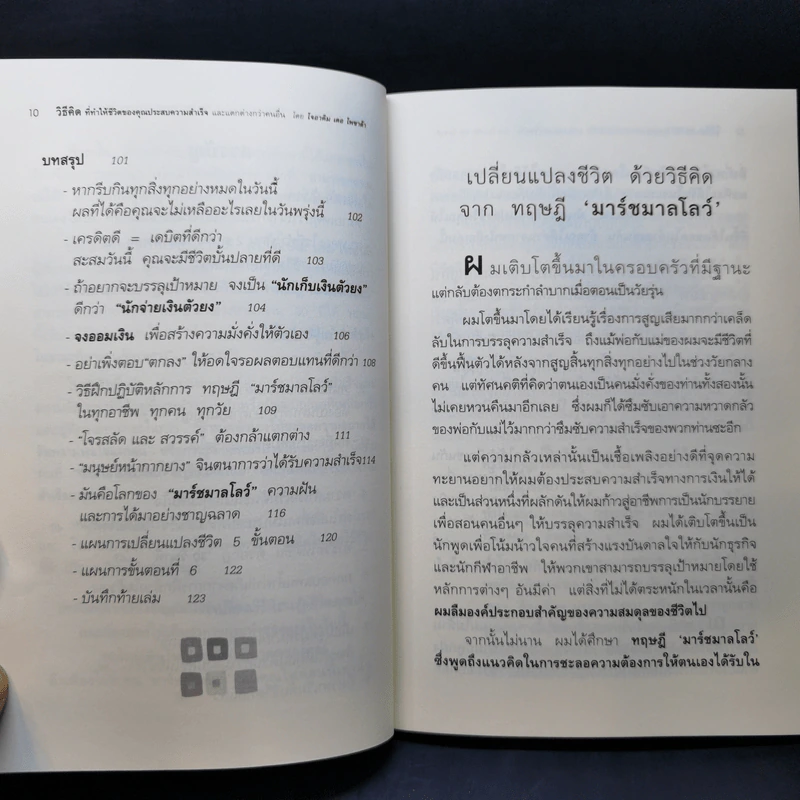 10 วิธีคิด ที่ทำให้ชีวิตของคุณประสบความสำเร็จ และแตกต่างกว่าคนอื่น โดย โจอาคิม เดอ โพซาด้า
บทสรุป 101
- หากรีบกินทุกสิ่งทุกอย่างหมดในวันนี้
ผลที่ได้คือคุณจะไม่เหลืออะไรเลยในวันพรุ่งนี้ 102
- เครดิตดี = เดบิตที่ดีกว่า
สะสมวันนี้ คุณจะมีชีวิตบั้นปลายที่ดี 103
- ถ้าอยากจะบรรลุเป้าหมาย จงเป็น "นักเก็บเงินตัวยง"
ดีกว่า "นักจ่ายเงินตัวยง" 104
- จงออมเงิน เพื่อสร้างความมั่งคั่งให้ตัวเอง 106
- อย่าเพิ่งตอบ "ตกลง" ให้อดใจรอผลตอบแทนที่ดีกว่า 108
- วิธีฝึกปฏิบัติหลักการ ทฤษฎี "มาร์ชมาลโลว์"
ในทุกอาชีพ ทุกคน ทุกวัย 109
- "โจรสลัด และ สวรรค์" ต้องกล้าแตกต่าง 111
- "มนุษย์หน้ากากยาง" จินตนาการว่าได้รับความสำเร็จ 114
- มันคือโลกของ "มาร์ชมาลโลว์" ความฝัน
และการได้มาอย่างชาญฉลาด 116
- แผนการเปลี่ยนแปลงชีวิต 5 ขั้นตอน 120
- แผนการขั้นตอนที่ 6 122
- บันทึกท้ายเล่ม 123
เปลี่ยนแปลงชีวิต ด้วยวิธีคิด
จาก ทฤษฎี 'มาร์ชมาลโลว์'
ผมเติบโตขึ้นมาในครอบครัวที่มีฐานะ
แต่กลับต้องตกระกำลำบากเมื่อตอนเป็นวัยรุ่น
ผมโตขึ้นมาโดยได้เรียนรู้เรื่องการสูญเสียมากกว่าเคล็ด
ลับในการบรรลุความสำเร็จ ถึงแม้พ่อกับแม่ของผมจะมีชีวิตที่
ดีขึ้นฟื้นตัวได้หลังจากสูญสิ้นทุกสิ่งทุกอย่างไปในช่วงวัยกลาง
คน แต่ทัศนคติที่คิดว่าตนเองเป็นคนมั่งคั่งของท่านทั้งสองนั้น
ไม่เคยหวนคืนมาอีกเลย ซึ่งผมก็ได้ซึมซับเอาความหวาดกลัว
ของพ่อกับแม่ไว้มากกว่าซึมซับความสำเร็จของพวกท่านซะอีก
แต่ความกลัวเหล่านั้นเป็นเชื้อเพลิงอย่างดีที่จุดความ
ทะยานอยากให้ผมต้องประสบความสำเร็จทางการเงินให้ได้
และเป็นส่วนหนึ่งที่ผลักดันให้ผมก้าวสู่อาชีพการเป็นนักบรรยาย
เพื่อสอนคนอื่นๆ ให้บรรลุความสำเร็จ ผมได้เติบโตขึ้นเป็น
นักพูดเพื่อโน้มน้าวใจคนที่สร้างแรงบันดาลใจให้กับนักธุรกิจ
และนักกีฬาอาชีพ ให้พวกเขาสามารถบรรลุเป้าหมายโดยใช้
หลักการต่างๆ อันมีค่า แต่สิ่งที่ไม่ได้ตระหนักในเวลานั้นคือ
ผมลืมองค์ประกอบสำคัญของความสมดุลของชีวิตไป
จากนั้นไม่นาน ผมได้ศึกษา ทฤษฎี 'มาร์ชมาลโลว์'
ซึ่งพูดถึงแนวคิดในการชะลอความต้องการให้ตนเองได้รับใน